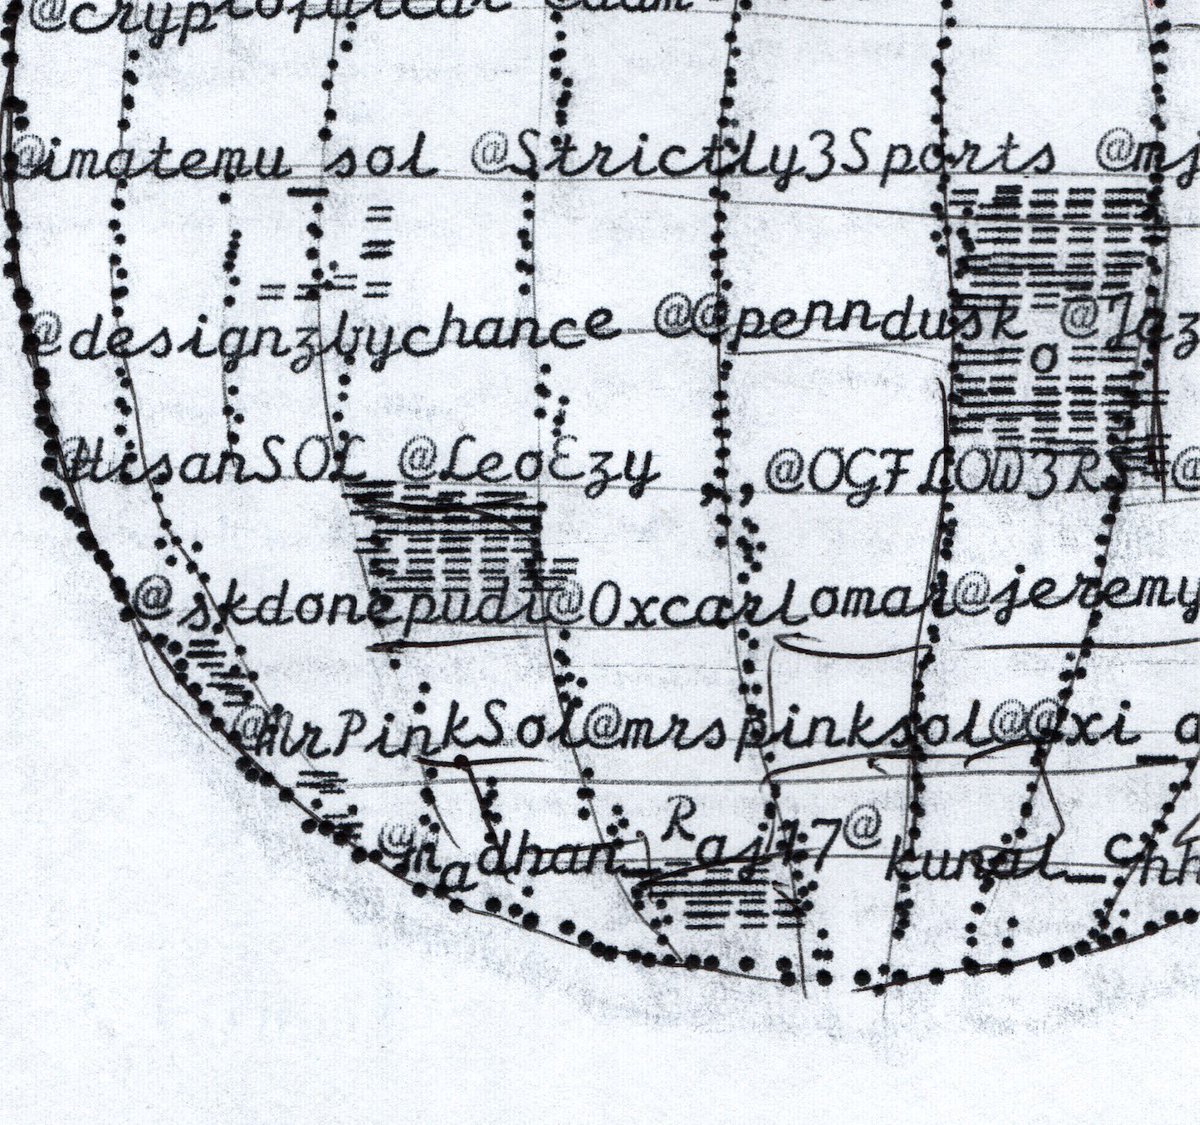 @imatemu_sol @Strictly3Sports
@designzbychance @@penndusk
@HisanSOL @LeoEzy @OGFLOW3RS @
@skdonepudi @0xcarlomar @jeremy
@MrPinkSol @mrspinksol @@xi_
@madhan_Raj17 @kunal_chh